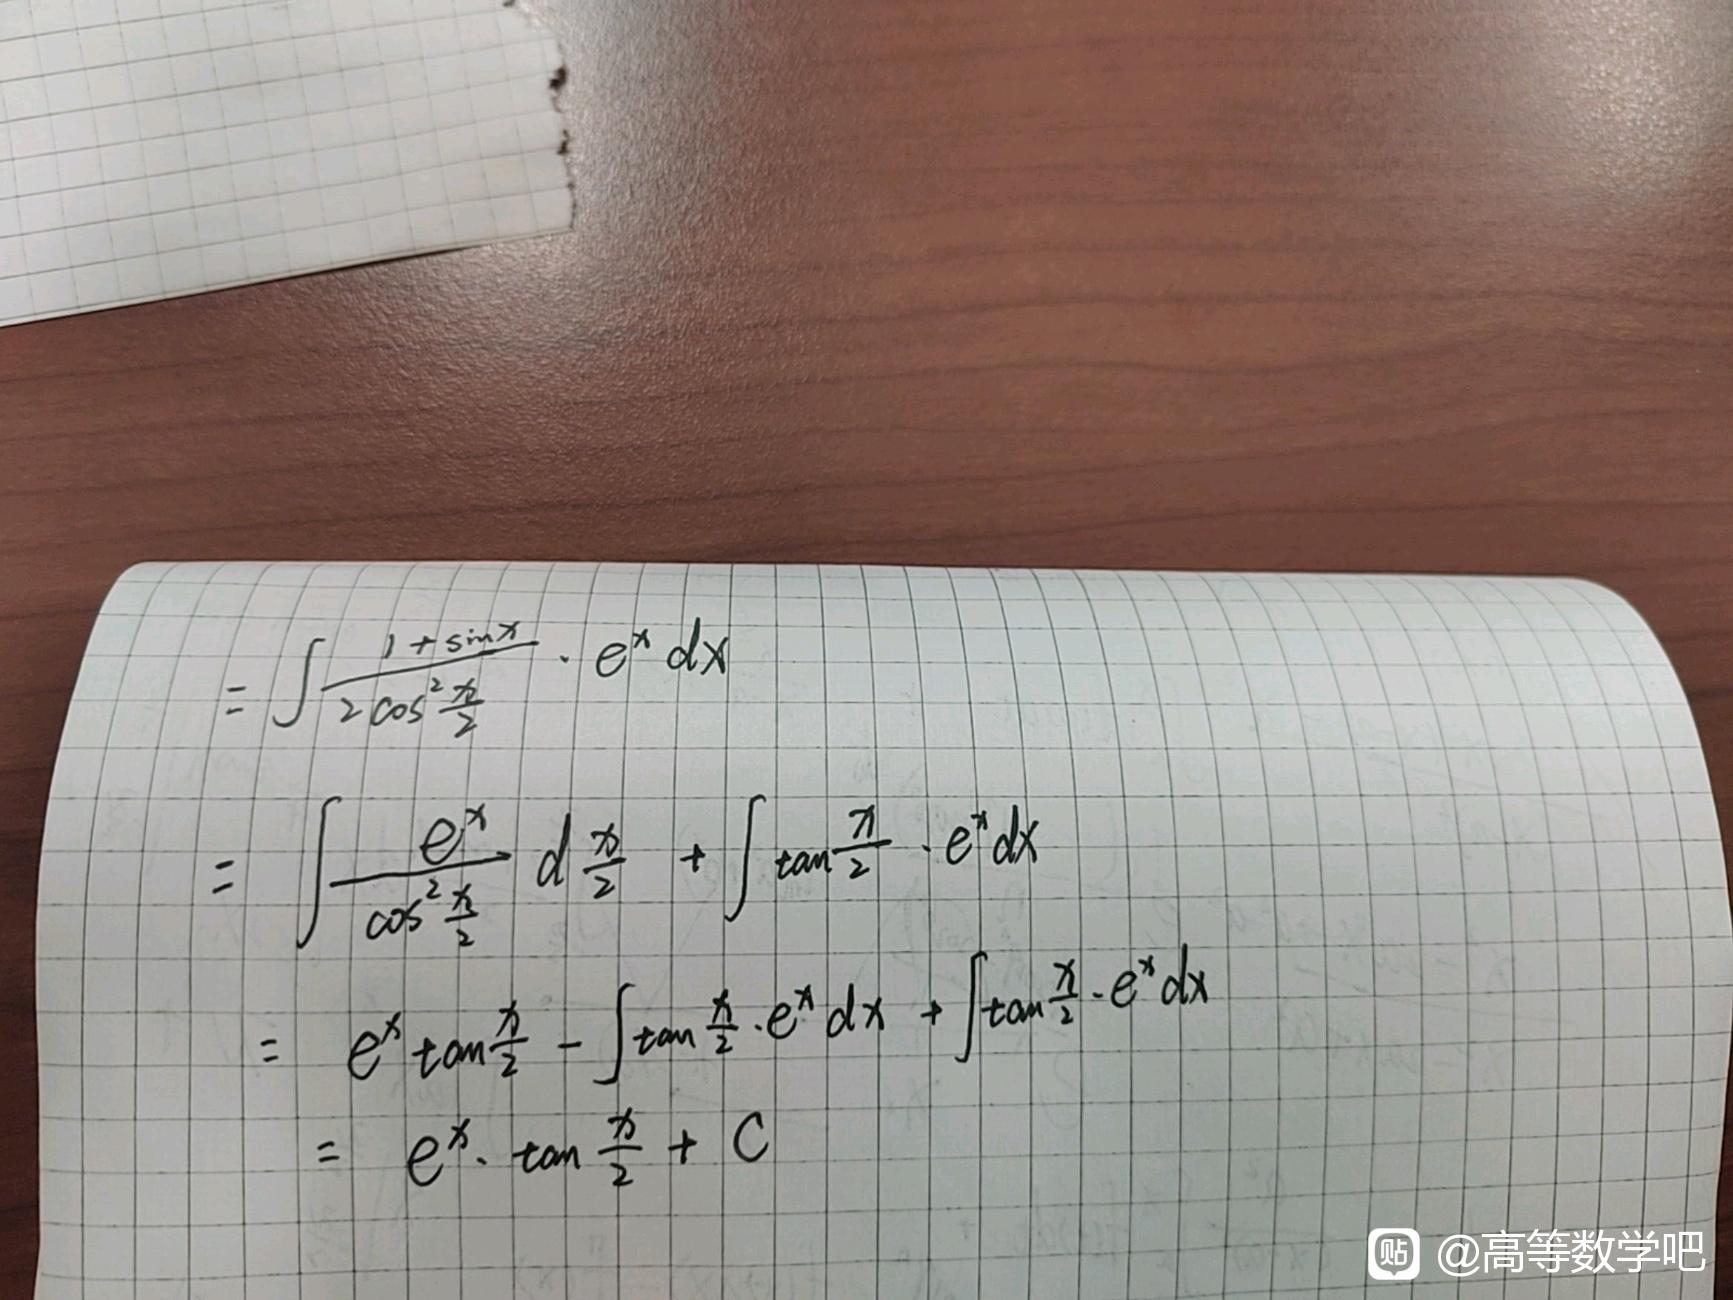 = ∫ (1 + sin x)/(2 cos² x/2) · eˣ dx
= ∫ eˣ/(cos² x/2) d x/2 + ∫ tan x/2 · eˣ dx
= eˣ tan x/2 − ∫ tan x/2 · eˣ dx + ∫ tan x/2 · eˣ dx
= eˣ · tan x/2 + C
贴 @高等数学吧